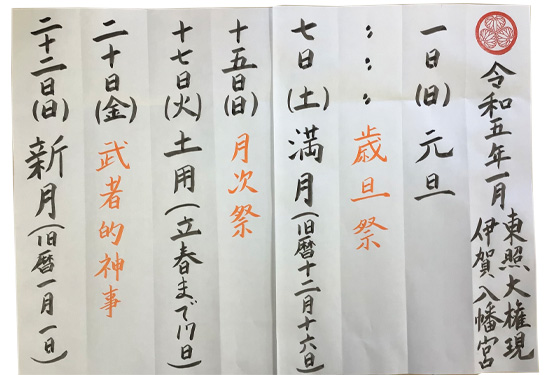 令和五年一月
東照大権現
伊賀八幡宮
一日(日) 元旦
：：： 歳旦祭
七日(土) 満月(旧暦十二月十六日)
十五日(日) 月次祭
十七日(火) 土用(立春まで17日)
二十日(金) 武者的神事
二十二日(日) 新月(旧暦一月一日)